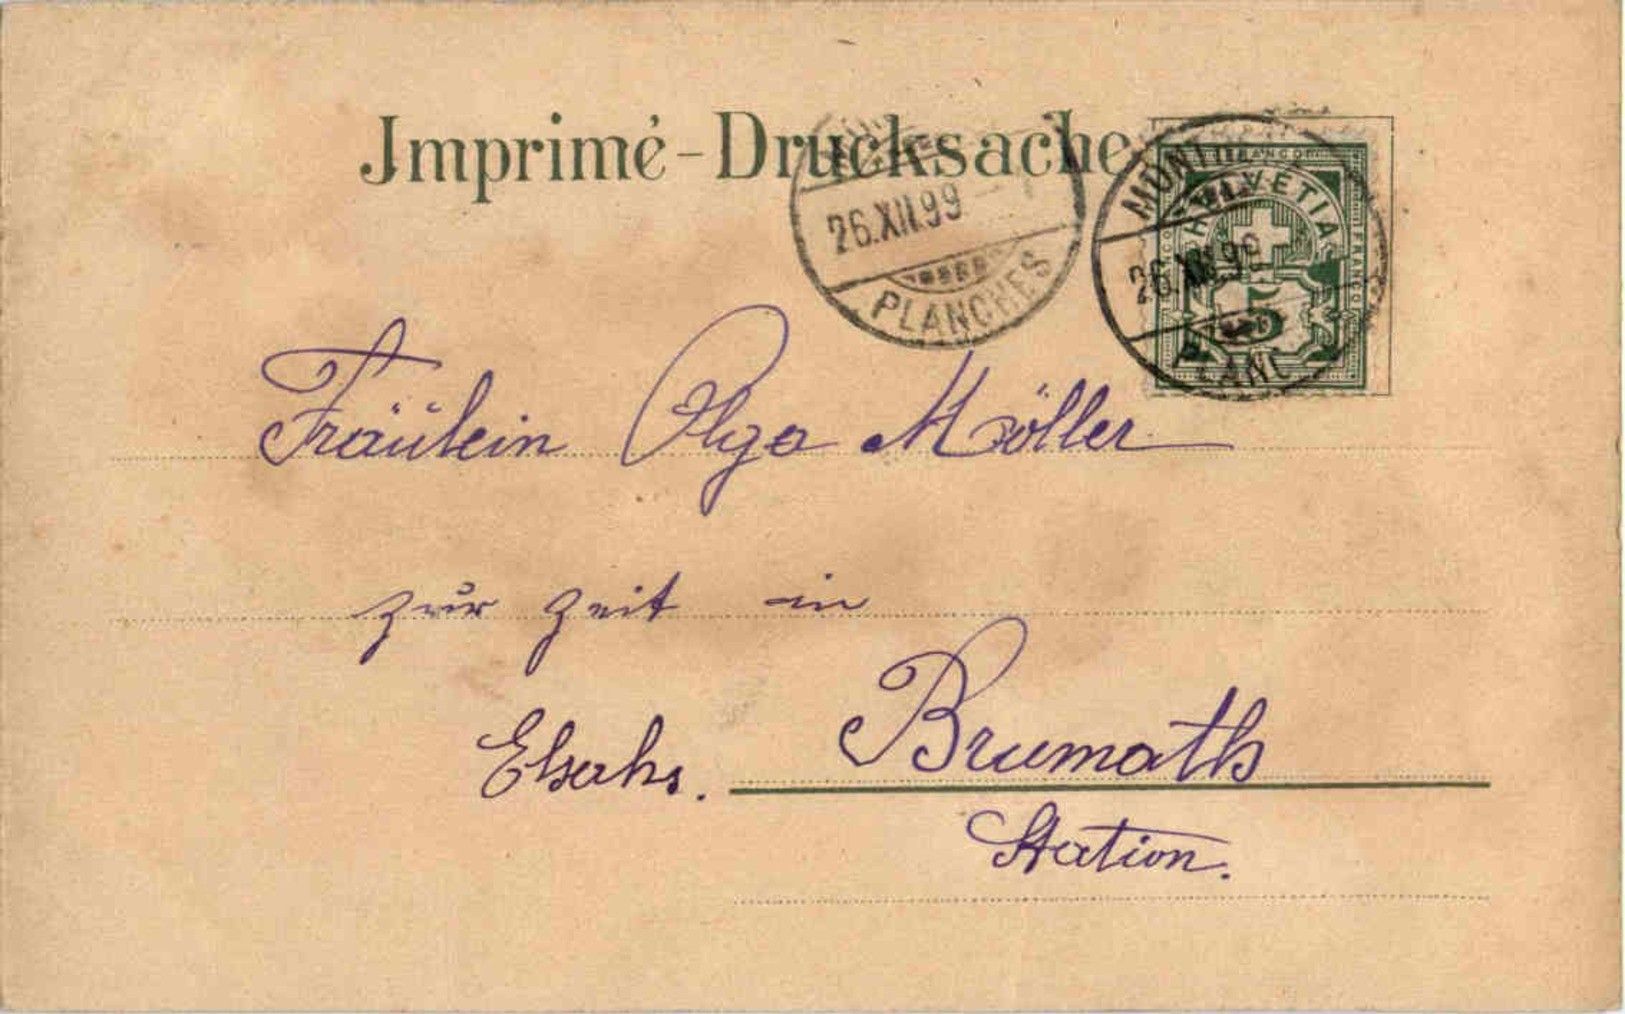 Imprimé-Drucksache
26.XII.99
PLANCHES
MONT
26.XII.99
PLANC
HELVETIA
5
Fräulein Olga Möller
zur Zeit in
Elsahs. Brumath
Station.